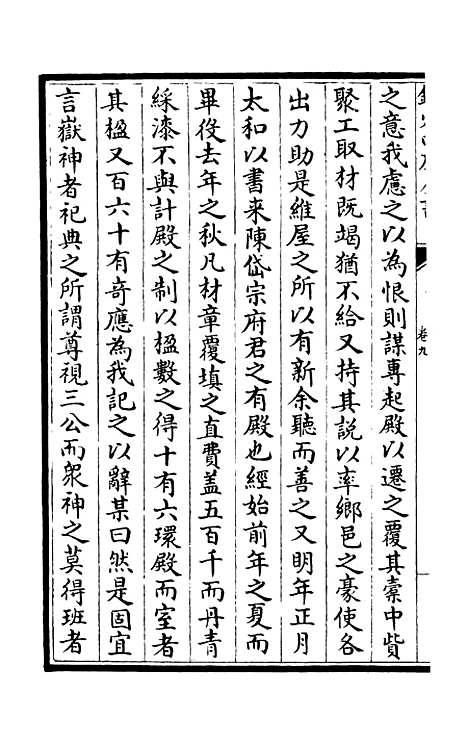 卷九
之意我慮之以為恨則謀專起殿以遷之覆其橐中貲
聚工取材既竭猶不給又持其說以率鄉邑之豪使各
出力助是維屋之所以有新余聽而善之又明年正月
太和以書来陳岱宗府君之有殿也經始前年之夏而
畢役去年之秋凡材章覆填之直費盖五百千而丹青
綵漆不與計殿之制以楹數之得十有六環殿而室者
其楹又百六十有奇應為我記之以辭某曰然是固宜
言嶽神者祀典之所謂尊視三公而衆神之莫得班者